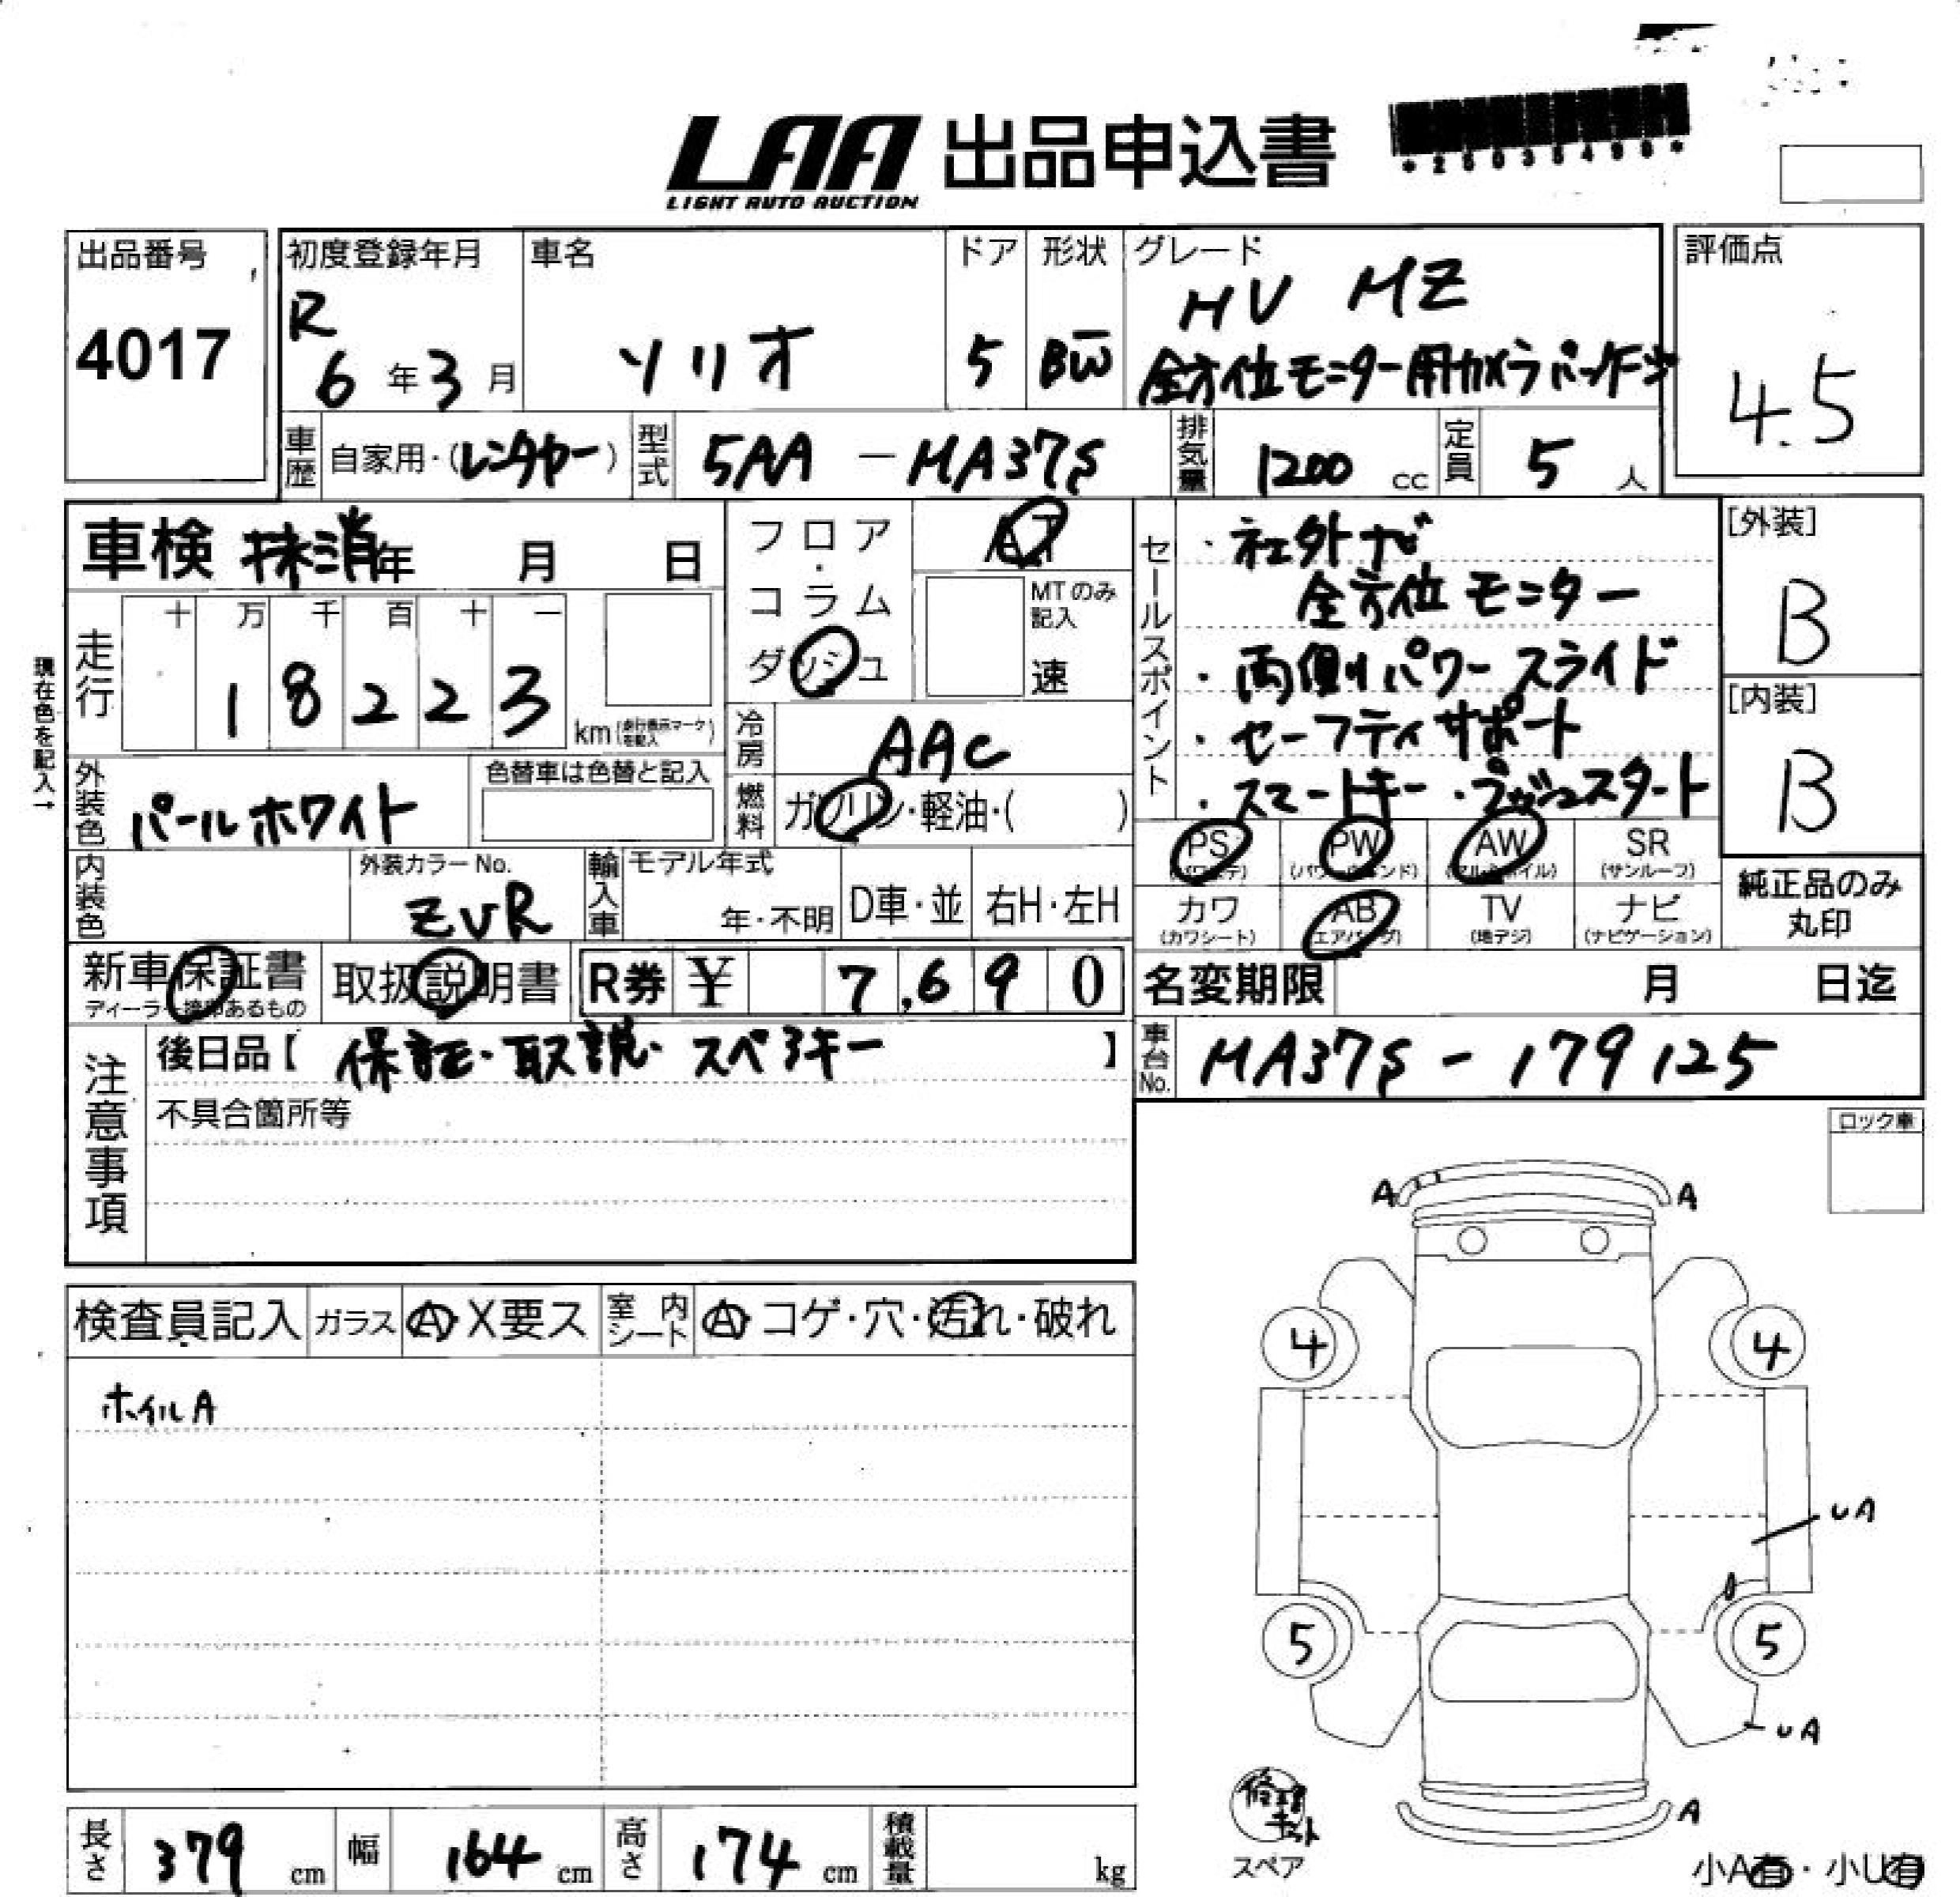 LAA 出品申込書
LIGHT AUTO AUCTION
出品番号
4017
初度登録年月
R
6年3月
車名
ソリオ
ドア
5
形状
BW
グレード
HV MZ
全方位モニター用カメラパッケージ
評価点
4.5
車歴
自家用・(レンタカー)
型式
5AA-MA37S
排気量
1200 cc
定員
5 人
車検 抹消年 月 日
現在色を記入→
走行
十 万 千 百 十 一
1 8 2 2 3
km(走行表示マークを記入)
フロア・コラム
ダッシュ
AT
MTのみ記入
速
冷房
AAC
燃料
ガソリン・軽油・( )
外装色
パールホワイト
色替車は色替と記入
内装色
外装カラーNo.
ZVR
輸入車
モデル年式
年・不明
D車・並
右H・左H
セールスポイント
・社外ナビ
全方位モニター
・両側パワースライド
・セーフティサポート
・スマートキー・プッシュスタート
[外装]
B
[内装]
B
PS (パワステ)
PW (パワーウィンド)
AW (アルミホイル)
SR (サンルーフ)
カワ (カワシート)
AB (エアバッグ)
TV (地デジ)
ナビ (ナビゲーション)
純正品のみ
丸印
新車保証書
取扱説明書
R券 ¥ 7,690
名変期限 月 日迄
注意事項
後日品【 保証・取説・スペアキー 】
不具合箇所等
車台No.
MA37S-179125
ロック車
検査員記入
ガラス
A・X要ス
室内シート
A・コゲ・穴・汚れ・破れ
ホイルA
A
A
4
4
UA
A
5
5
UA
A
修理キット
スペア
小A有・小U有
長さ 379 cm
幅 164 cm
高さ 174 cm
積載量 kg